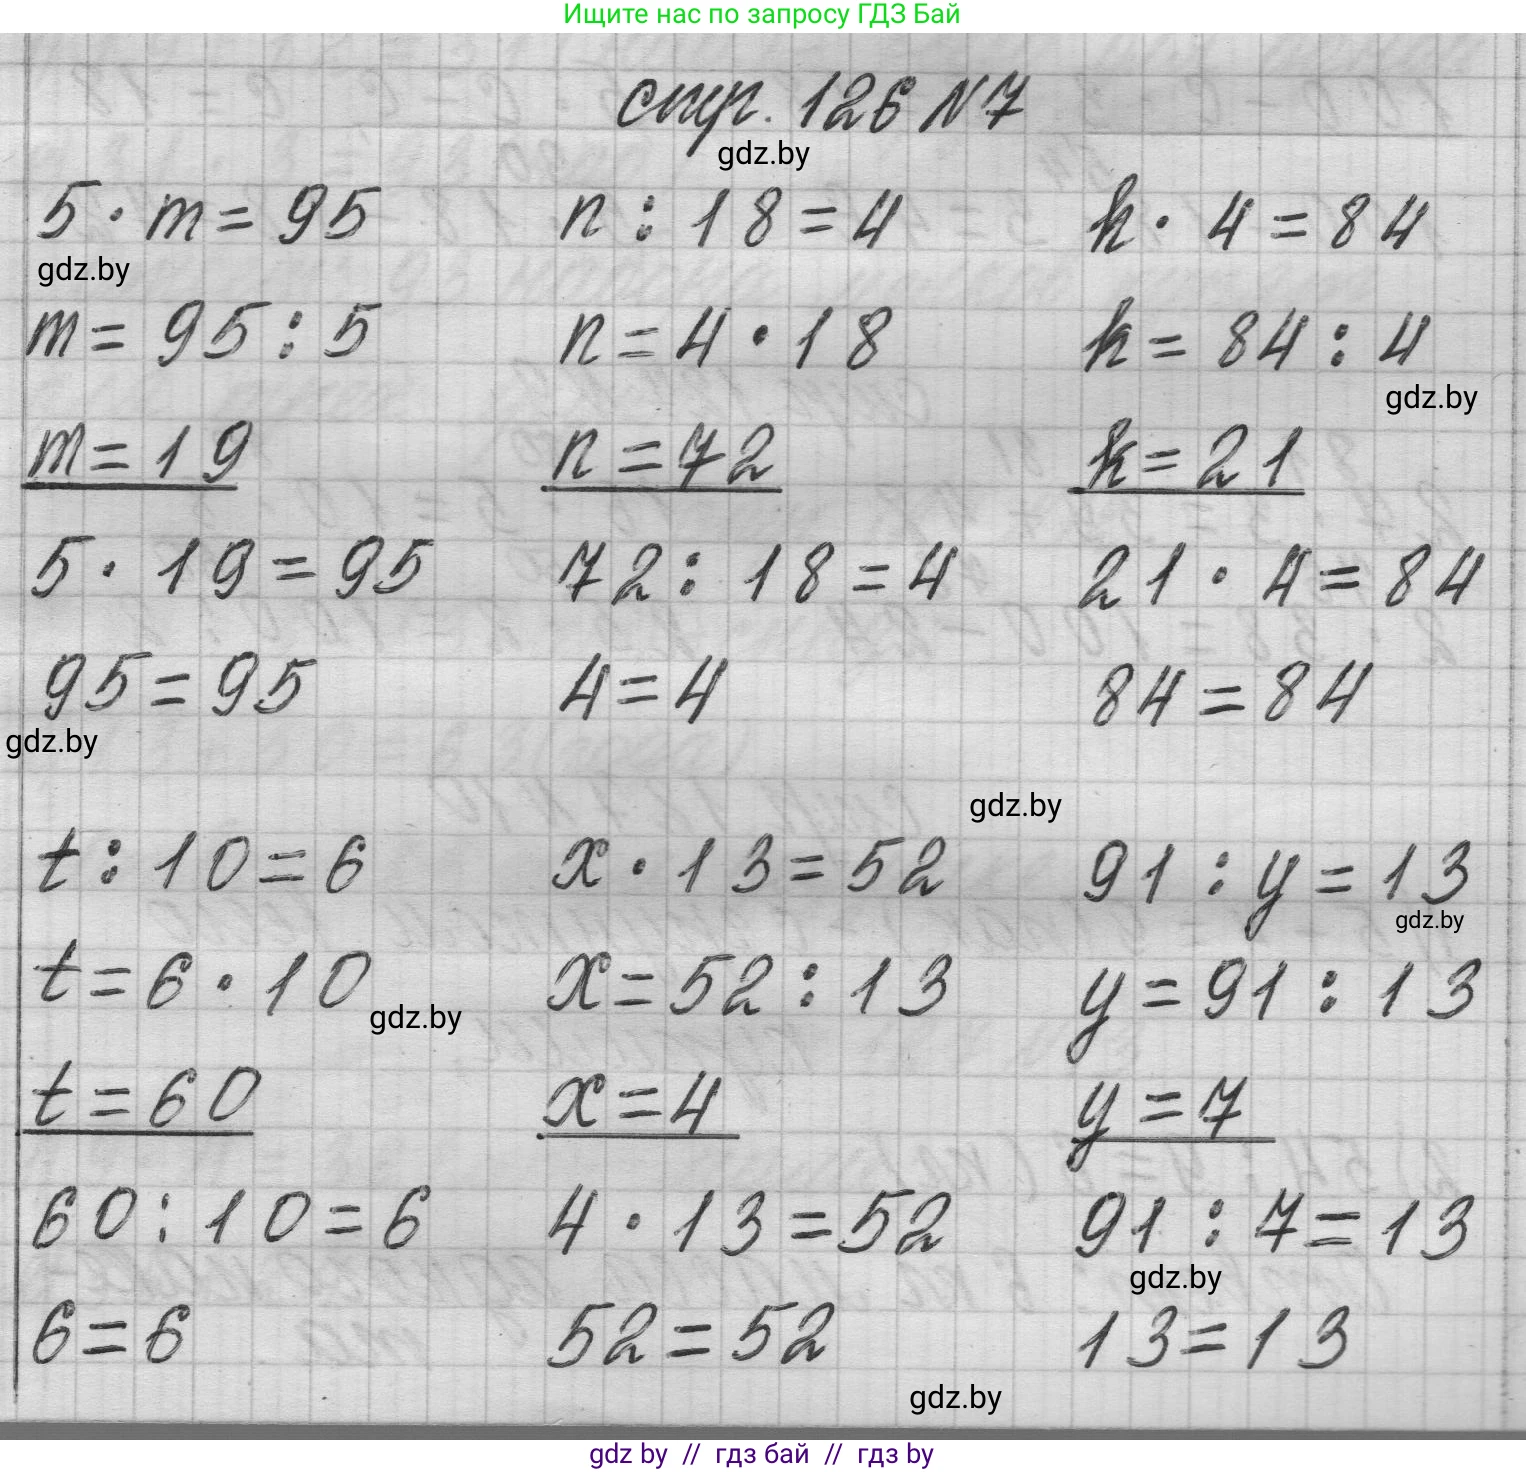 Ищите нас по запросу ГДЗ Бай
стр. 126 N 7
gdz.by
5 · m = 95    n : 18 = 4    k · 4 = 84
gdz.by
m = 95 : 5    n = 4 · 18    k = 84 : 4
gdz.by
m = 19    n = 72    k = 21
5 · 19 = 95    72 : 18 = 4    21 · 4 = 84
95 = 95    4 = 4    84 = 84
gdz.by
gdz.by
t : 10 = 6    x · 13 = 52    91 : y = 13
gdz.by
t = 6 · 10    x = 52 : 13    y = 91 : 13
gdz.by
t = 60    x = 4    y = 7
60 : 10 = 6    4 · 13 = 52    91 : 7 = 13
gdz.by
6 = 6    52 = 52    13 = 13
gdz.by
gdz by // гдз бай // гдз by